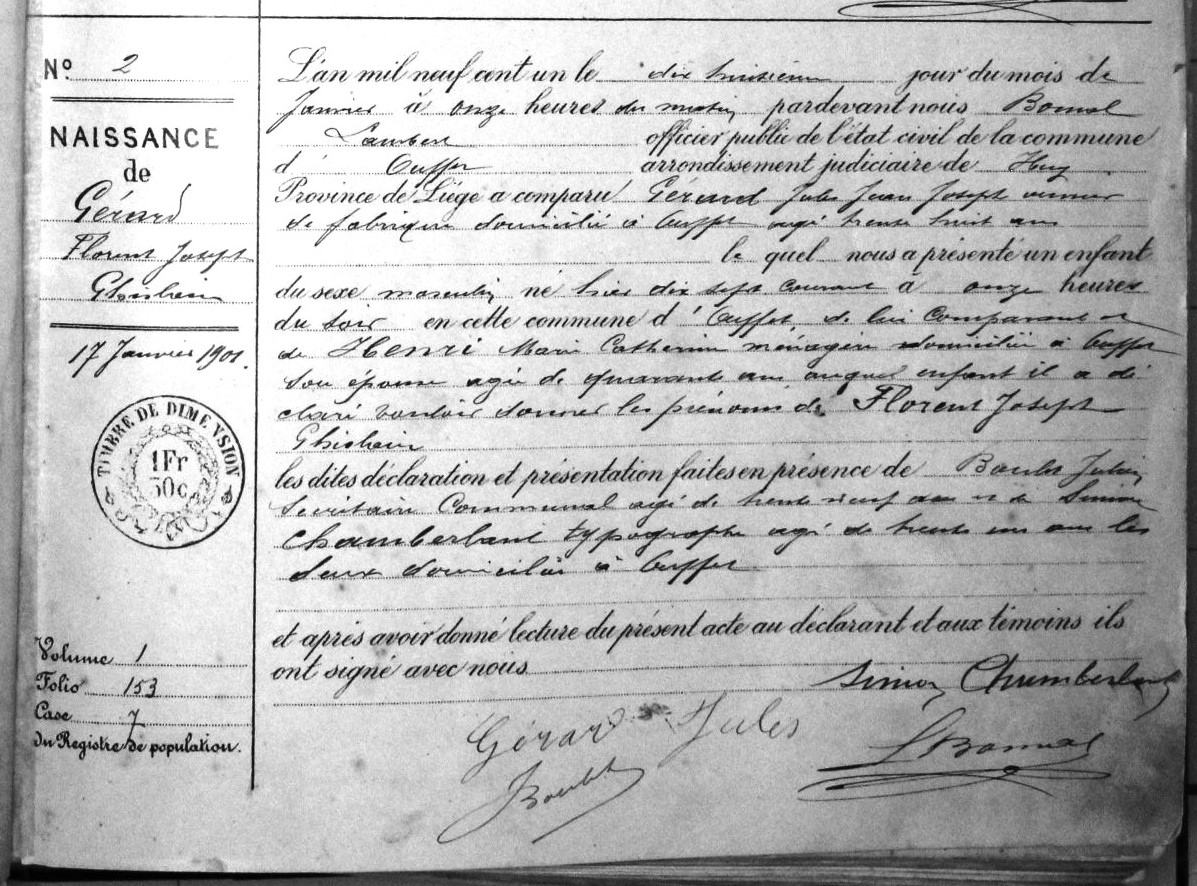 N° 2
NAISSANCE
de
Gérard
Florent Joseph
Ghislain
17 Janvier 1901.
TIMBRE DE DIMENSION
1Fr
50c
Volume 1
Folio 153
Case 7
du Registre de population.
L'an mil neuf cent un le dix huitième jour du mois de
Janvier à onze heures du matin pardevant nous Bonmal
Lambert officier public de l'état civil de la commune
d' Ouffet arrondissement judiciaire de Huy
Province de Liége a comparu Gérard Jules Jean Joseph ouvrier
de fabrique domicilié à Ouffet agé trente huit ans
le quel nous a présenté un enfant
du sexe masculin né hier dix sept courant à onze heures
du soir en cette commune d'Ouffet, de lui Comparant et
de Henri Marie Catherine ménagère domiciliée à Ouffet
son épouse agée de quarante ans auquel enfant il a dé
claré vouloir donner les prénoms de Florent Joseph
Ghislain
les dites déclaration et présentation faites en présence de Boulet Julien
Secrétaire Communal agé de trente neuf ans et de Simon
Chamberlant typographe agé de trente un ans les
deux domiciliés à Ouffet
et après avoir donné lecture du présent acte au déclarant et aux témoins ils
ont signé avec nous
Simon Chamberlant
Gérard Jules
LBonmal
JBoulet